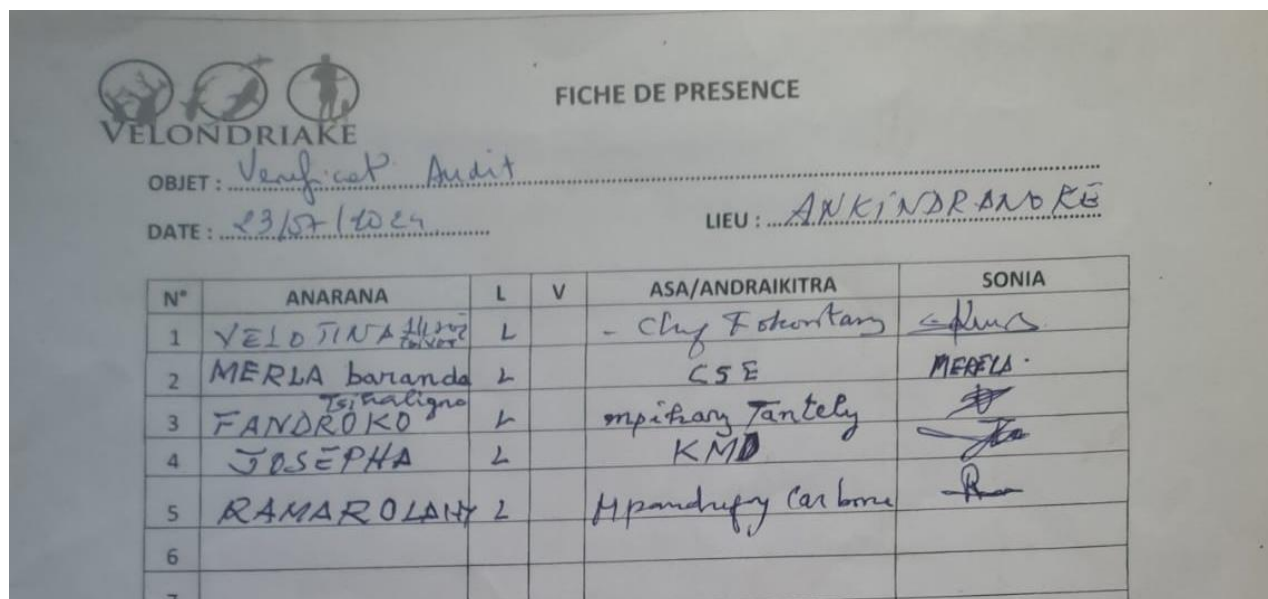 VELONDRIAKE
FICHE DE PRESENCE
OBJET : Verificat° Audit
DATE : 23/07/2024
LIEU : ANKINDRANOKE
N° ANARANA L V ASA/ANDRAIKITRA SONIA
1 VELOTINA L - Chef Fokontany
2 MERLA baranda L CSE MERELA.
Tsihaligno
3 FANDROKO L mpihary Tantely
4 JOSEPHA L KMD
5 RAMAROLAHY L Mpandrefy Carbone
6